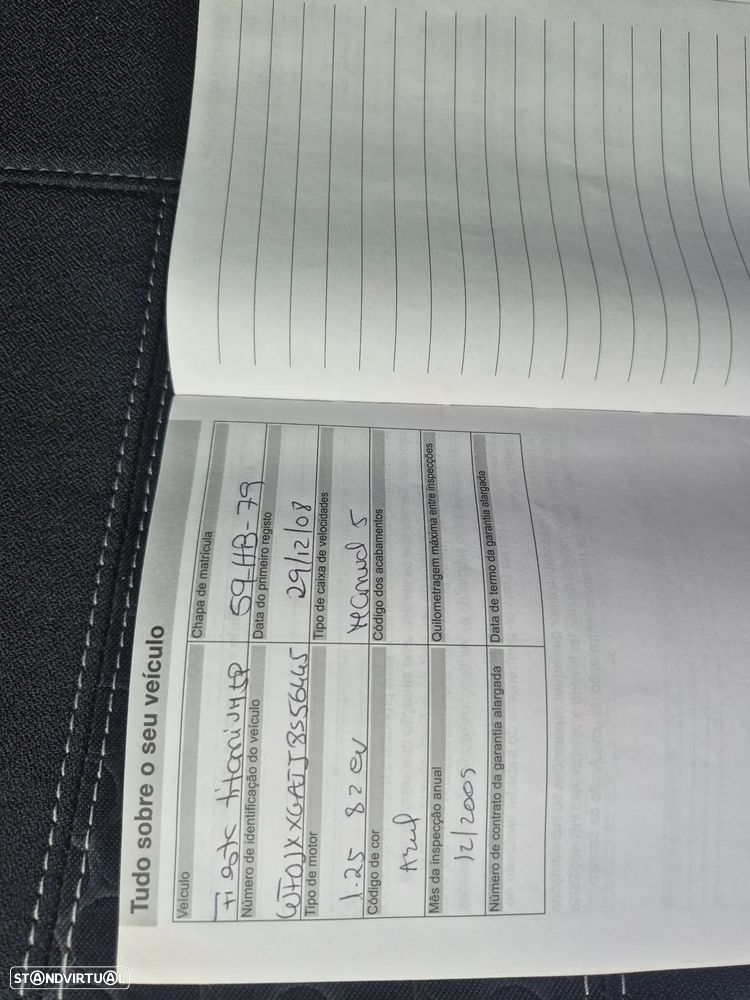 Tudo sobre o seu veículo
Veículo
Chapa de matrícula
Fiesta titanium 5P
59-HB-79
Número de identificação do veículo
Data do primeiro registo
WF0JXXGAJJ8S56445
29/12/08
Tipo de motor
Tipo de caixa de velocidades
1.25 82 cv
Manual 5
Código de cor
Código dos acabamentos
Azul
Mês da inspecção anual
Quilometragem máxima entre inspecções
12/2009
Número de contrato da garantia alargada
Data de termo da garantia alargada
STANDVIRTUAL